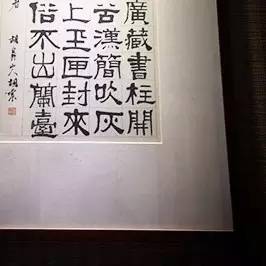 廣藏書柱開
苦漢簡吹灰
上玉匣封來
俗不出蘭臺